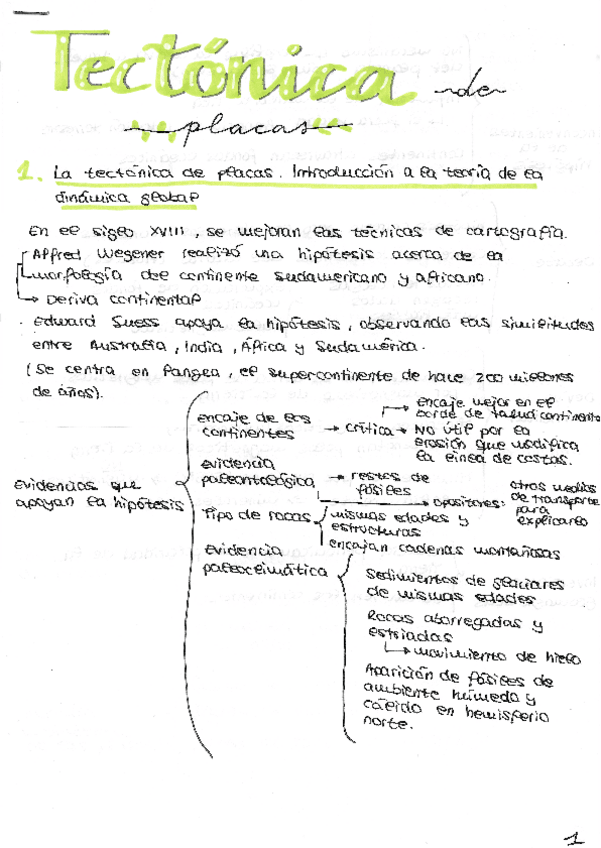 Tectónica de
placas
1. La tectónica de placas. Introducción a la teoría de la
dinámica global
En el siglo XVIII, se mejoran las técnicas de cartografía.
Alfred Wegener realizó una hipótesis acerca de la
morfología del continente sudamericano y africano.
→ Deriva continental
· Edward Suess apoya la hipótesis, observando las similitudes
entre Australia, India, África y Sudamérica.
(Se centra en Pangea, el supercontinente de hace 200 millones
de años).
Evidencias que
apoyan la hipótesis
encaje de los
continentes → crítica
→ encaje mejor en el
borde de talud continental
→ No útil por la
erosión que modifica
la línea de costas.
evidencia
paleontológica → restos de
fósiles
→ opositores: otros medios
de transporte
para
explicarlo
Tipo de rocas
mismas edades y
estructuras
encajan cadenas montañosas
Evidencia
paleoclimática
Sedimentos de glaciares
de mismas edades
Rocas aborregadas y
estriadas
→ movimiento de hielo
Aparición de fósiles de
ambiente húmedo y
cálido en hemisferio
norte.
1